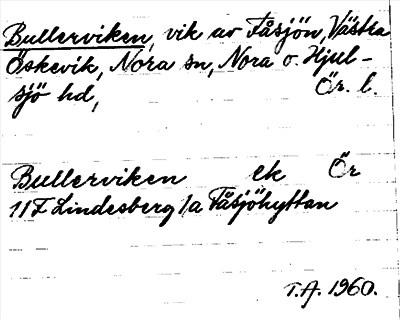 Bullerviken, vik av Fåsjön, Västra
Öskevik, Nora sn, Nora o. Hjul-
sjö hd, Ör. l.
Bullerviken ek Ör
11F Lindesberg 1/a Fåsjöhyttan
T.A. 1960.